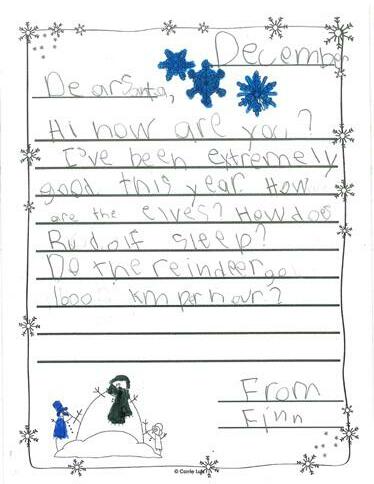 December
Dear Santa,
Hi how are you?
I've been extremely
good this year. How
are the elves? How does
Rudolf sleep?
Do the reindeer go
1000 km per hour?
From
Finn
© Carrie Lutz